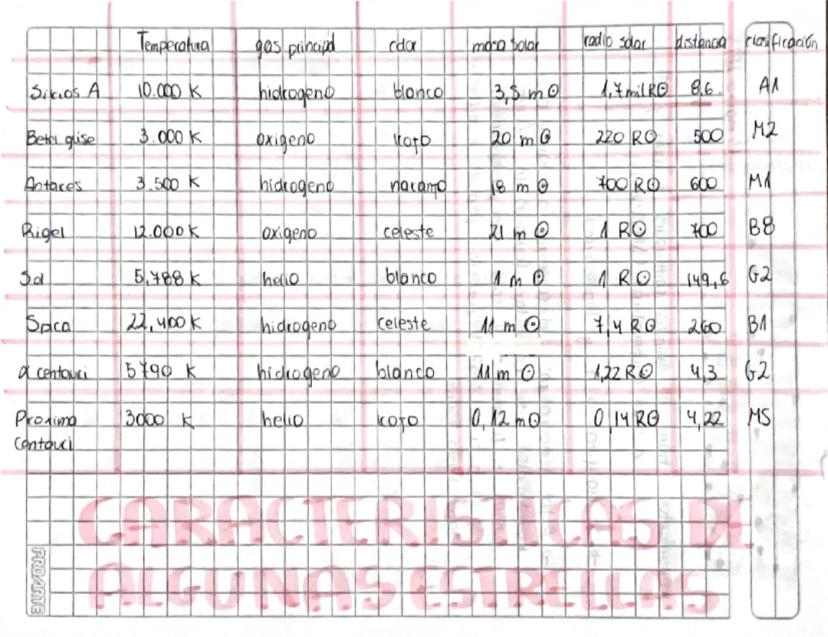 Temperatura gas principal color masa solar radio solar distancia clasificación
Sirios A 10.000 K hidrogeno blanco 3,5 m☉ 1,7milR☉ 8,6 A1
Betel guise 3.000 K oxigeno rojo 20 m☉ 220 R☉ 500 M2
Antares 3.500 K hidrogeno naranjo 18 m☉ 700 R☉ 600 M1
Rigel 12.000K oxigeno celeste 21 m☉ 1 R☉ 700 B8
Sol 5,788 K helio blanco 1 m☉ 1 R☉ 149,6 G2
Spica 22,400 K hidrogeno celeste 11 m☉ 7,4 R☉ 260 B1
α centauri 5790 K hidrogeno blanco 11 m☉ 1,22 R☉ 4,3 G2
Proxima 3000 K helio rojo 0,12 m☉ 0,14 R☉ 4,22 M5
centauri
CARACTERISTICAS DE
ALGUNAS ESTRELLAS
PROARTE